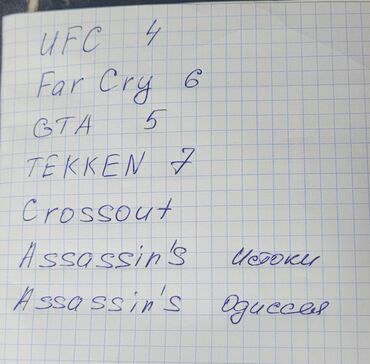 UFC 4
Far Cry 6
GTA 5
TEKKEN 7
Crossout
Assassin's Истоки
Assassin's Одиссея